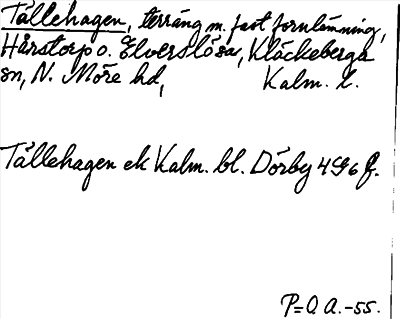 Tållehagen, terräng m. fast fornlämning,
Hårstorp o. Elverslösa, Kläckeberga
sn, N. Möre hd, Kalm. l.
Tållehagen ek Kalm. bl. Dörby 4G6f.
P=O A.-55.